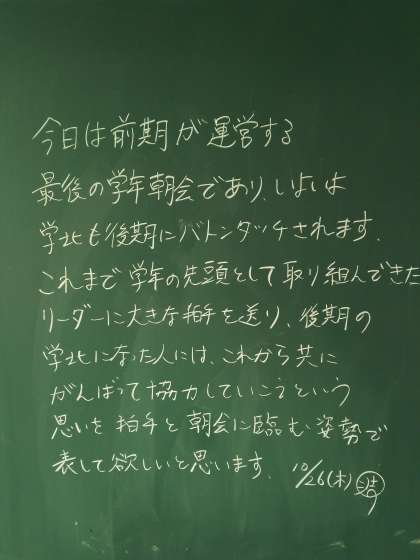 今日は前期が運営する
最後の学年朝会であり、いよいよ
学北も後期にバトンタッチされます。
これまで学年の先頭として取り組んできた
リーダーに大きな拍手を送り、後期の
学北になった人には、これから共に
がんばって協力していこうという
思いを拍手と朝会に臨む姿勢で
表して欲しいと思います。 10/26(木)